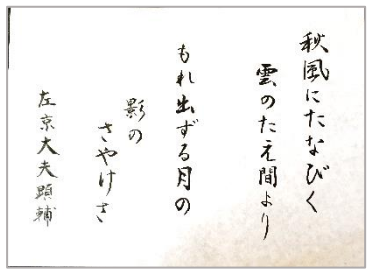 秋風にたなびく
雲のたえ間より
もれ出ずる月の
影の
さやけさ
左京大夫顕輔